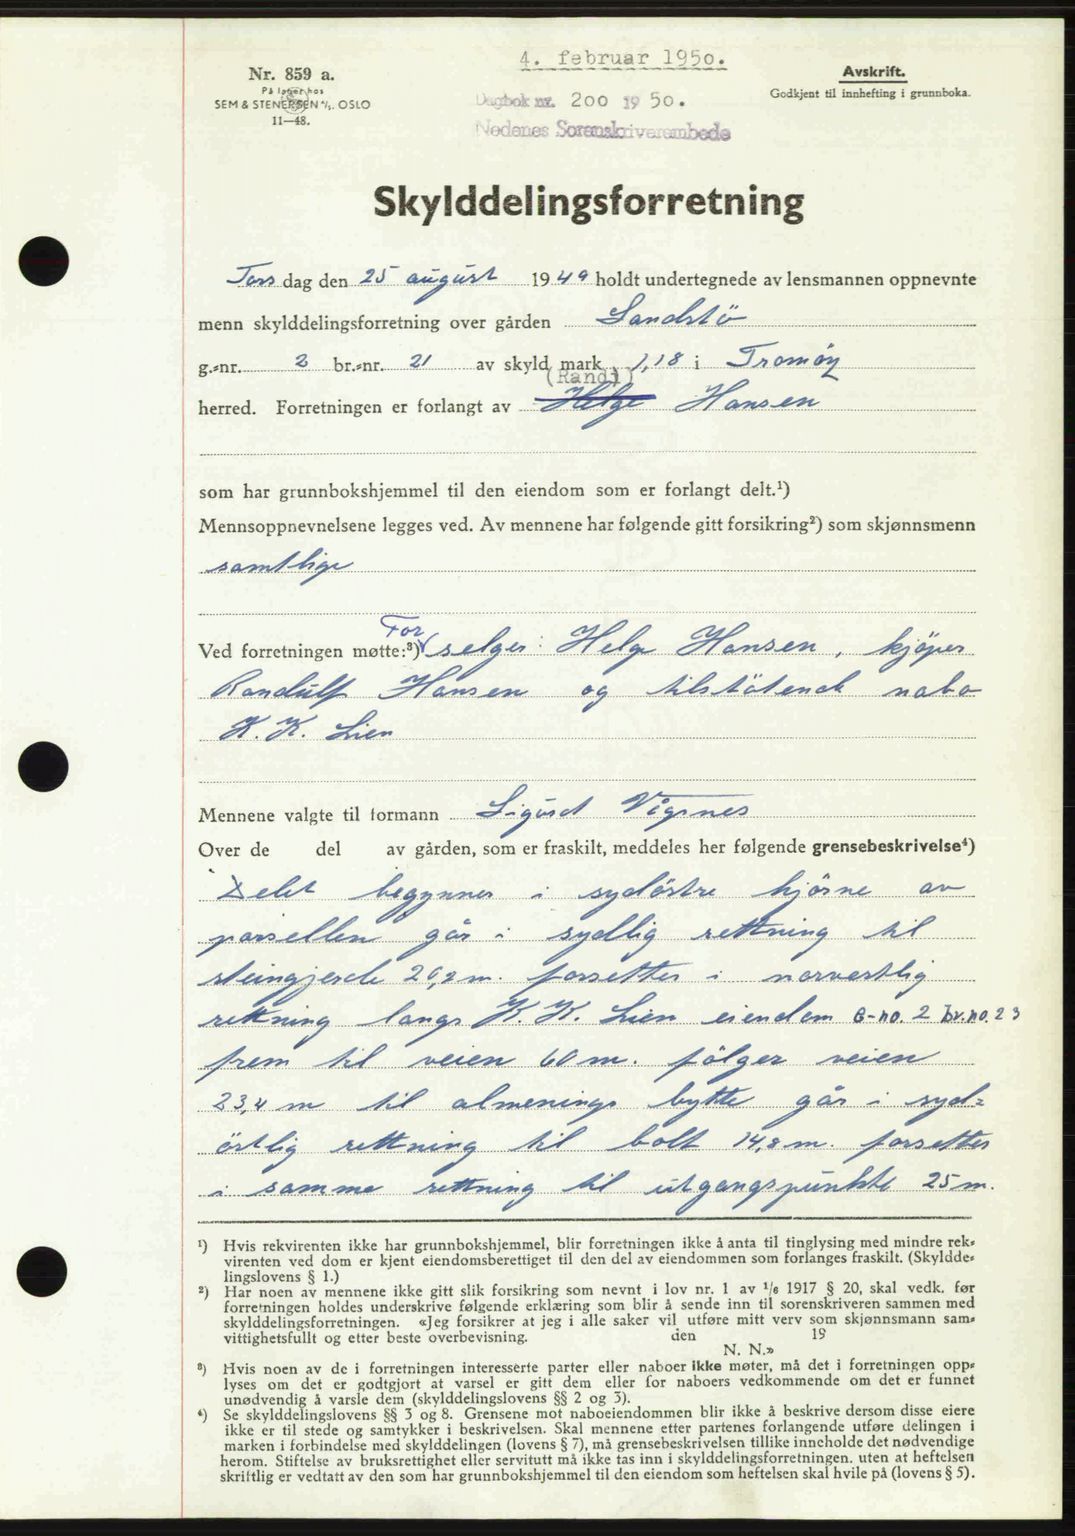 4. februar 1950.
Nr. 859 a.
På lager hos
SEM & STENERSEN A/S. OSLO
11—48.
Avskrift.
Godkjent til innhefting i grunnboka.
Dagbok nr. 200 1950.
Nedenes Sorenskriverembede
Skylddelingsforretning
Tors dag den 25 august 1949 holdt undertegnede av lensmannen oppnevnte
menn skylddelingsforretning over gården Sandstö
g.-nr. 2 br.-nr. 21 av skyld mark 1,18 i Tromöy
(Randi)
herred. Forretningen er forlangt av Helge Hansen
som har grunnbokshjemmel til den eiendom som er forlangt delt.¹)
Mennsoppnevnelsene legges ved. Av mennene har følgende gitt forsikring²) som skjønnsmenn
samtlige
For
Ved forretningen møtte:³) selger: Helge Hansen, kjöper
Randulf Hansen og tilstötende nabo
K. K. Lien
Mennene valgte til formann Sigurd Vågsnes
Over de del av gården, som er fraskilt, meddeles her følgende grensebeskrivelse⁴)
Delet begynner i sydöstre hjörne av
parsellen går i sydlig rettning til
steingjerde 20,2 m. forsetter i norvestlig
rettning langs K. K. Lien eiendom G-no. 2 br.no. 23
frem til veien 60 m. fölger veien
23,4 m til almenings bytte går i syd-
östlig rettning til bolt 14,8 m. forsetter
i samme rettning til utgangspunkte 25 m.
¹) Hvis rekvirenten ikke har grunnbokshjemmel, blir forretningen ikke å anta til tinglysing med mindre rek-
virenten ved dom er kjent eiendomsberettiget til den del av eiendommen som forlanges fraskilt. (Skyldde-
lingslovens § 1.)
²) Har noen av mennene ikke gitt slik forsikring som nevnt i lov nr. 1 av 1/6 1917 § 20, skal vedk. før
forretningen holdes underskrive følgende erklæring som blir å sende inn til sorenskriveren sammen med
skylddelingsforretningen. «Jeg forsikrer at jeg i alle saker vil utføre mitt verv som skjønnsmann sam-
vittighetsfullt og etter beste overbevisning. den 19
N. N.»
³) Hvis noen av de i forretningen interesserte parter eller naboer ikke møter, må det i forretningen opp-
lyses om det er godtgjort at varsel er gitt dem eller for naboers vedkommende om det er funnet
unødvendig å varsle dem (skylddelingslovens §§ 2 og 3).
⁴) Se skylddelingslovens §§ 3 og 8. Grensene mot naboeiendommen blir ikke å beskrive dersom disse eiere
ikke er til stede og samtykker i beskrivelsen. Skal mennene etter partenes forlangende utføre delingen i
marken i forbindelse med skylddelingen (lovens § 7), må grensebeskrivelsen tillike inneholde det nødvendige
herom. Stiftelse av bruksrettighet eller servitutt må ikke tas inn i skylddelingsforretningen. uten at heftelsen
skriftlig er vedtatt av den som har grunnbokshjemmel til den eiendom som heftelsen skal hvile på (lovens § 5).